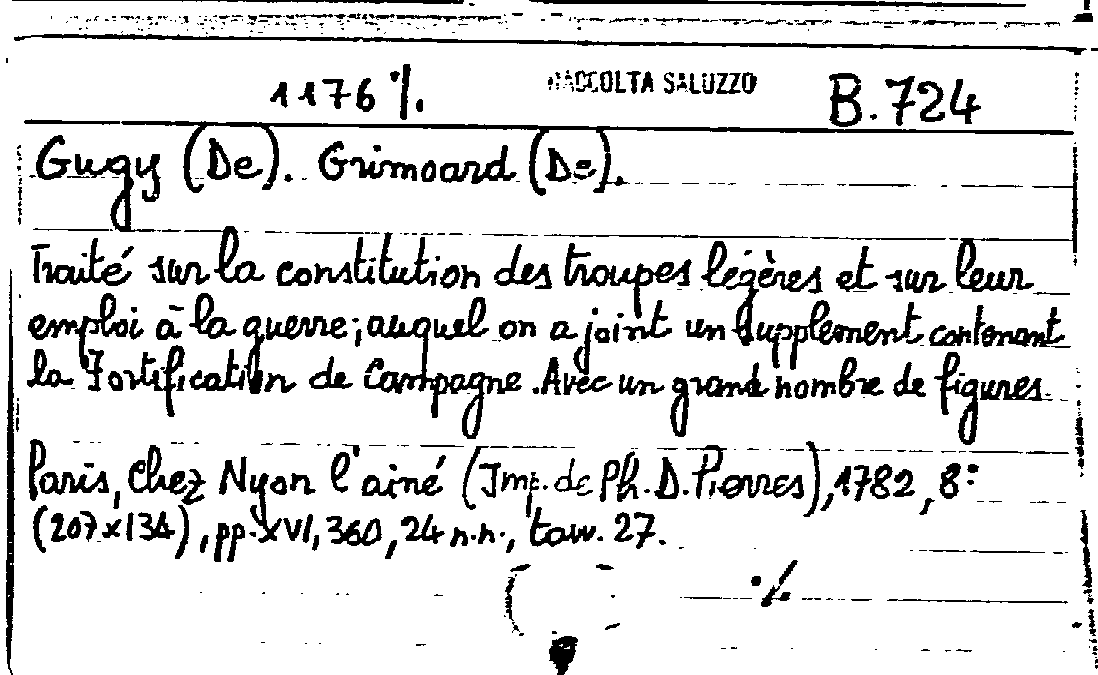 1176 ·/. RACCOLTA SALUZZO B.724
Gugy (De). Grimoard (De).
Traité sur la constitution des troupes légères et sur leur
emploi à la guerre; auquel on a joint un supplement contenant
la Fortification de Campagne. Avec un grand nombre de figures.
Paris, Chez Nyon l'ainé (Imp. de Ph. D. Pierres), 1782, 8:
(207x134), pp. XVI, 360, 24 n.n., tavv. 27.
·/.